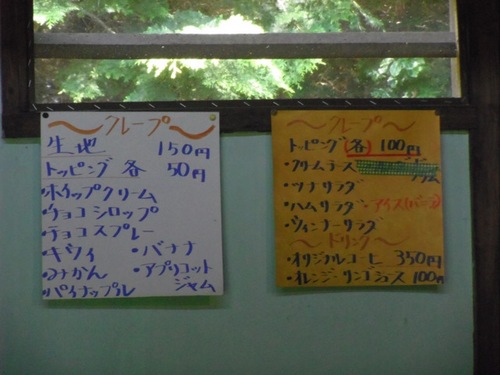 〜クレープ〜
生地 150円
トッピング 各 50円
・ホイップクリーム
・チョコシロップ
・チョコスプレー
・キウィ ・バナナ
・みかん ・アプリコットジャム
・パイナップル
〜クレープ〜
トッピング(各)100円
・クリームチーズ
・ツナサラダ
・ハムサラダ ・アイス(バニラ)
・ウィンナーサラダ
〜ドリンク〜
・オリジナルコーヒー 350円
・オレンジ・リンゴジュース 100円